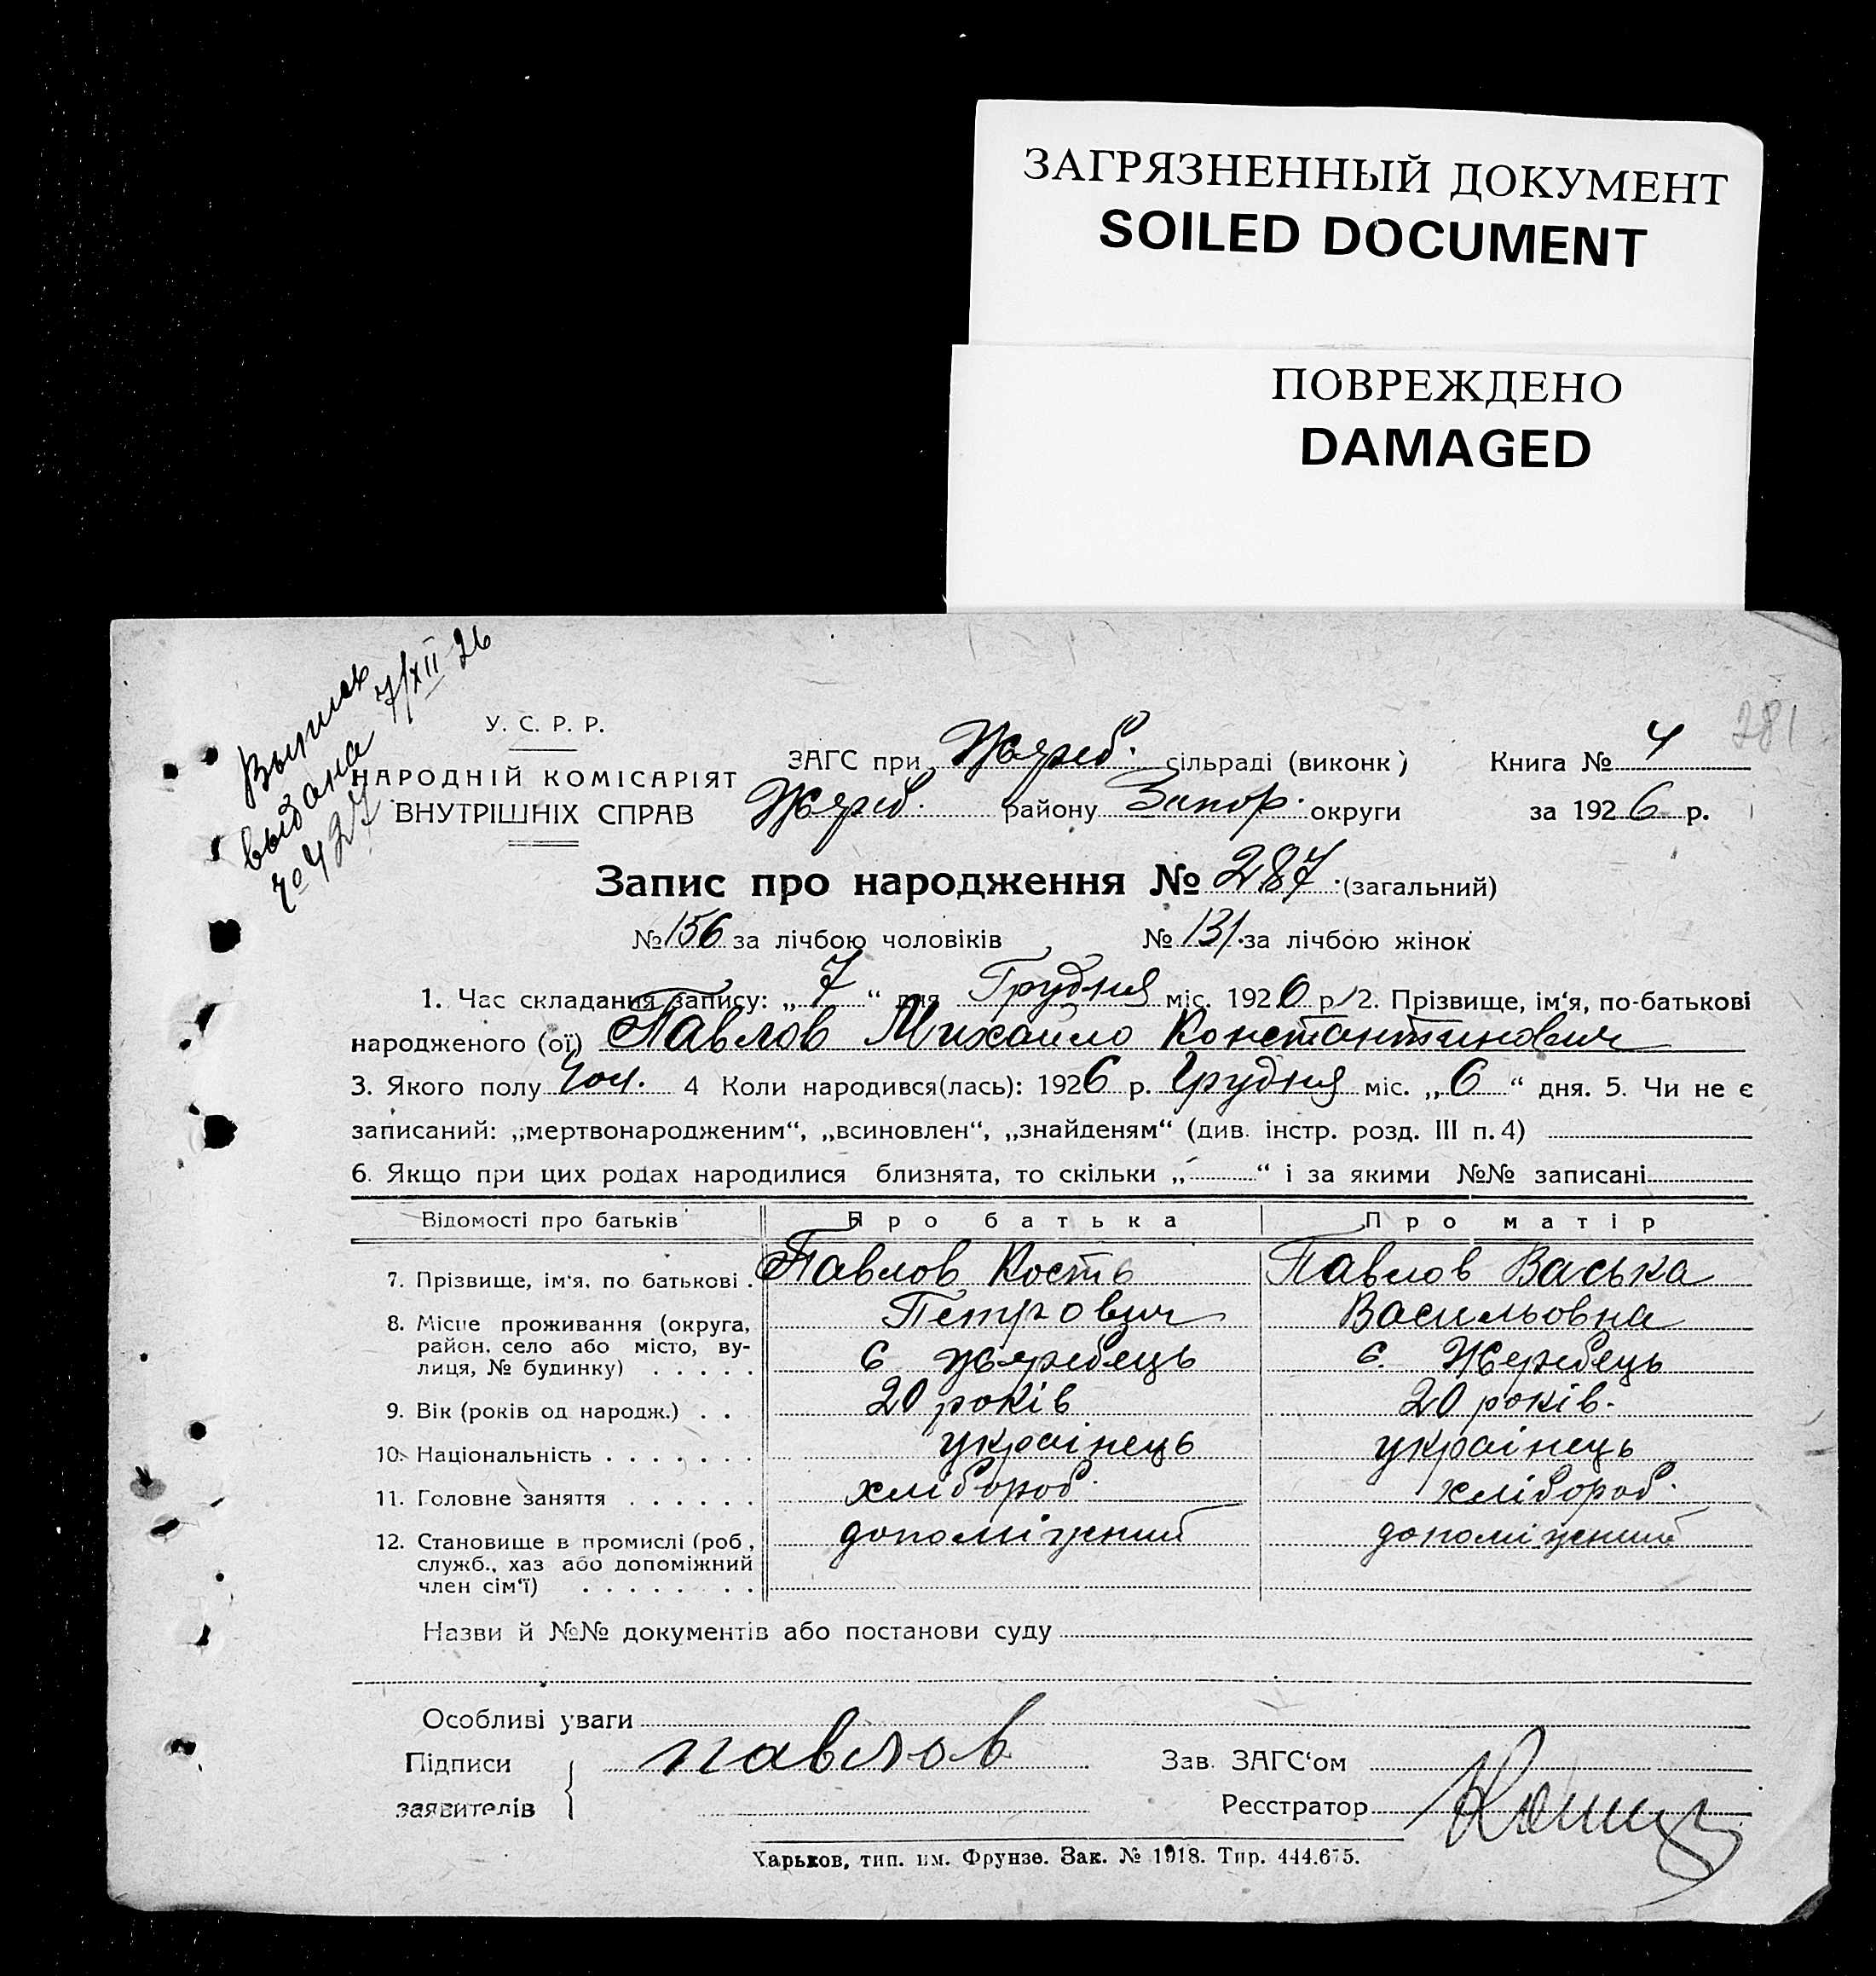 ЗАГРЯЗНЕННЫЙ ДОКУМЕНТ
SOILED DOCUMENT
ПОВРЕЖДЕНО
DAMAGED
Выпись
выдана 7/XII 26
№ 427
281
У. С. Р. Р.
НАРОДНІЙ КОМІСАРІЯТ
ВНУТРІШНІХ СПРАВ
ЗАГС при Жереб. сільраді (виконк) Книга № 4
Жереб. району Запор. округи за 1926 р.
Запис про народження № 287. (загальний)
№ 156 за лічбою чоловіків № 131. за лічбою жінок
1. Час складання запису: „ 7 “ дня Грудня міс. 1926 р. 2. Прізвище, ім‘я, по-батькові
народженого (ої) Павлов Михайло Константинович
3. Якого полу чол. 4 Коли народився(лась): 1926 р. Грудня міс. „ 6 “ дня. 5. Чи не є
записаний: „мертвонародженим“, „всиновлен“, „знайденям“ (див. інстр. розд. III п. 4)
6. Якщо при цих родах народилися близнята, то скільки „ “ і за якими №№ записані
Відомості про батьків Про батька Про матір
7. Прізвище, ім‘я, по батькові . Павлов Кость Павлов Васька
Петрович Васильовна
8. Місце проживання (округа,
район, село або місто, ву-
лиця, № будинку) . . . . . с Жеребець с. Жеребець
9. Вік (років од народж.) . . 20 років 20 років.
10. Національність . . . . . . . українець українець
11. Головне заняття . . . . . . хлібороб. хлібороб.
12. Становище в промислі (роб., допоміжний допоміжний
служб., хаз або допоміжний
член сім‘ї) . . . . . . . .
Назви й №№ документів або постанови суду
Особливі уваги
Підписи
заявителів { павлов
Зав. ЗАГС‘ом
Реєстратор
Харьков, тип. им. Фрунзе. Зак. № 1918. Тир. 444.675.